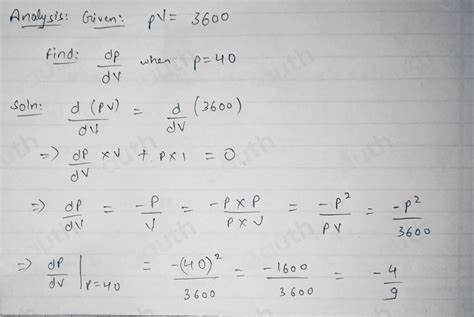 Analysis: Given: pV = 3600
Find: dp/dV when p=40
Soln: d(PV)/dV = d/dV (3600)
=> dP/dV × V + P × 1 = 0.
=> dP/dV = -P/V = -P×P/P×V = -P²/PV = -P²/3600
=> dP/dV |P=40 = -(40)²/3600 = -1600/3600 = -4/9